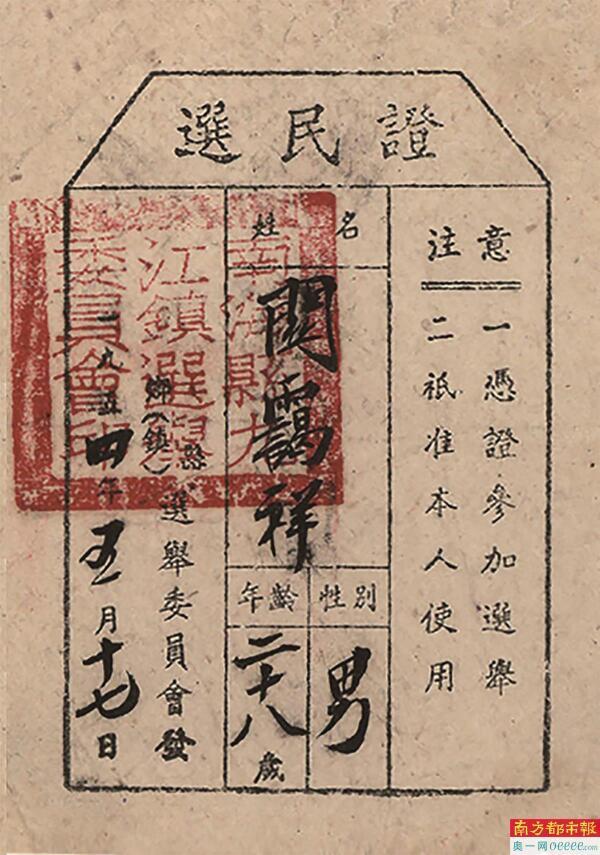 選民證
注意
一憑證參加選舉
二祇准本人使用
姓名
関靄祥
性別
男
年齡
二十八歲
縣
鄉(鎮)
選舉委員會發
一九五四年五月十七日
南海縣九
江鎮選舉
委員會印
南方都市報
奥一网oeeee.com